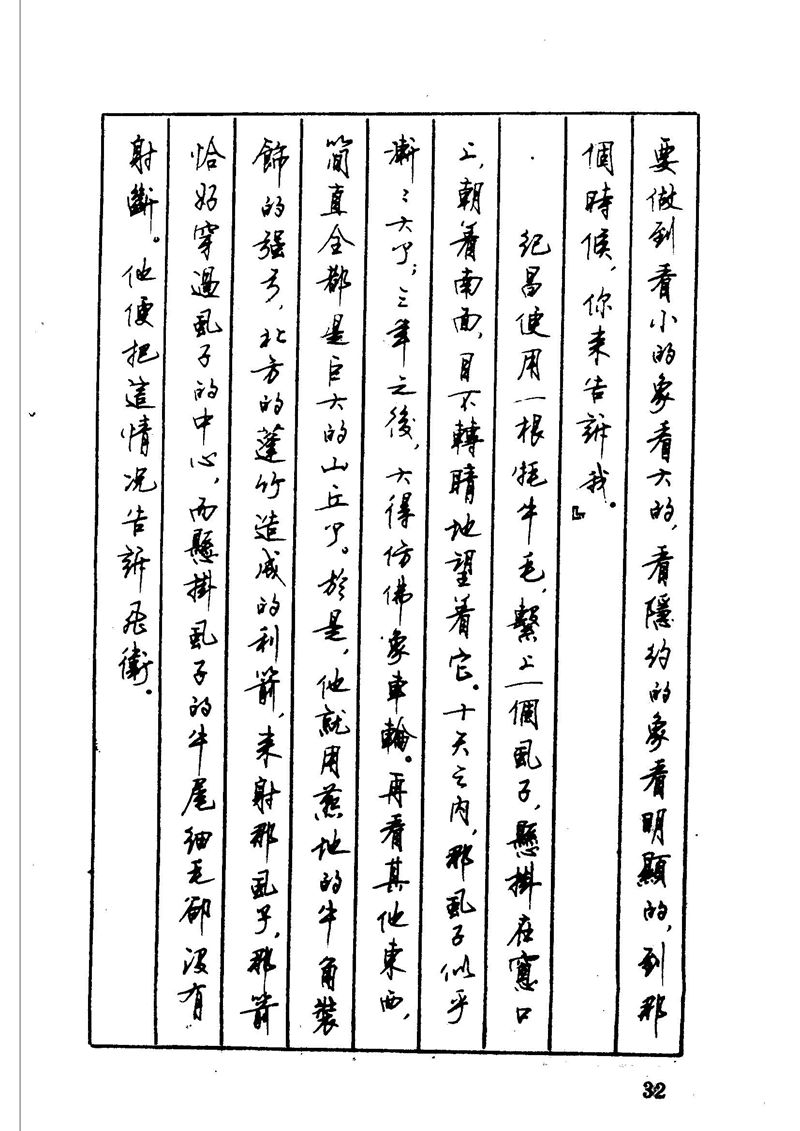 要做到看小的象看大的，看隱約的象看明顯的，到那
個時候，你来告訴我。』
紀昌使用一根牦牛毛，繫上一個虱子，懸掛在窗口
上，朝着南面，目不轉睛地望着它。十天之内，那虱子似乎
漸〻大了；三年之後，大得仿佛象車輪。再看其他東西，
簡直全都是巨大的山丘了。於是，他就用燕地的牛角裝
飾的强弓，北方的蓬竹造成的利箭，来射那虱子，那箭
恰好穿過虱子的中心，而懸掛虱子的牛尾細毛卻没有
射斷。他便把這情况告訴飛衛。
32